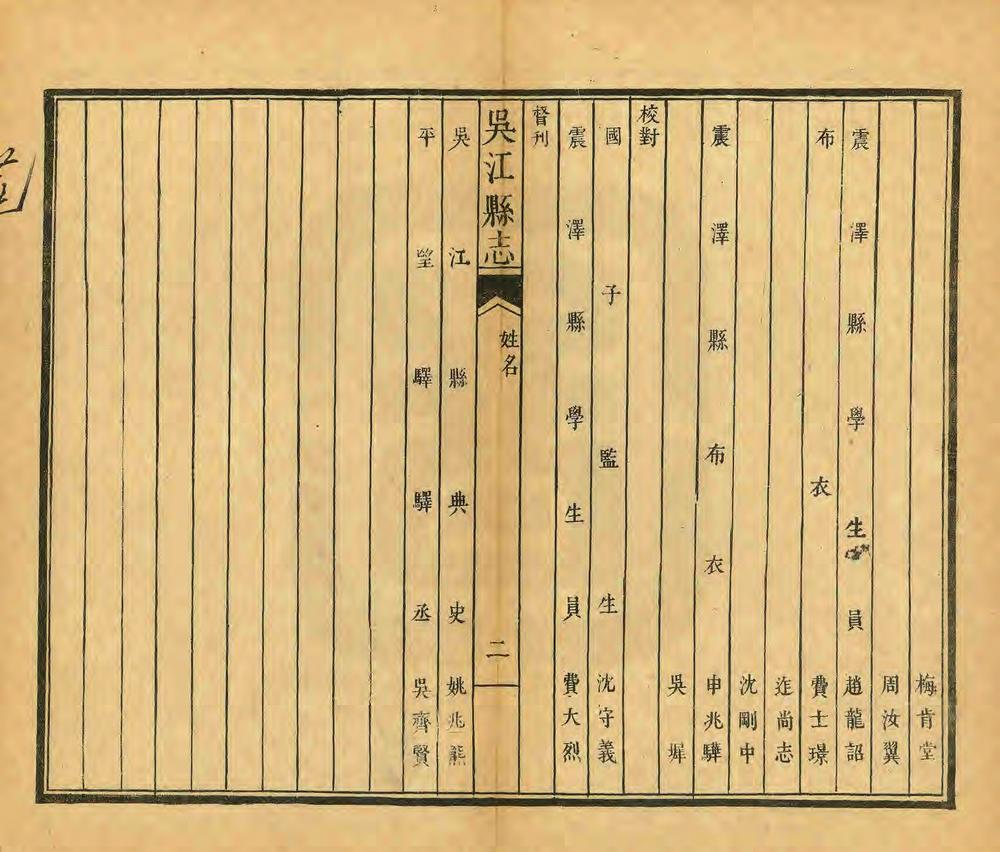 梅肯堂
周汝翼
震澤縣學生員 趙龍詔
布衣 費士璟
迮尚志
沈剛中
震澤縣布衣 申兆驊
吳墀
校對
國子監生 沈守義
震澤縣學生員 費大烈
督刊
吳江縣志
姓名
二
吳江縣典史 姚兆熊
平望驛驛丞 吳齊賢